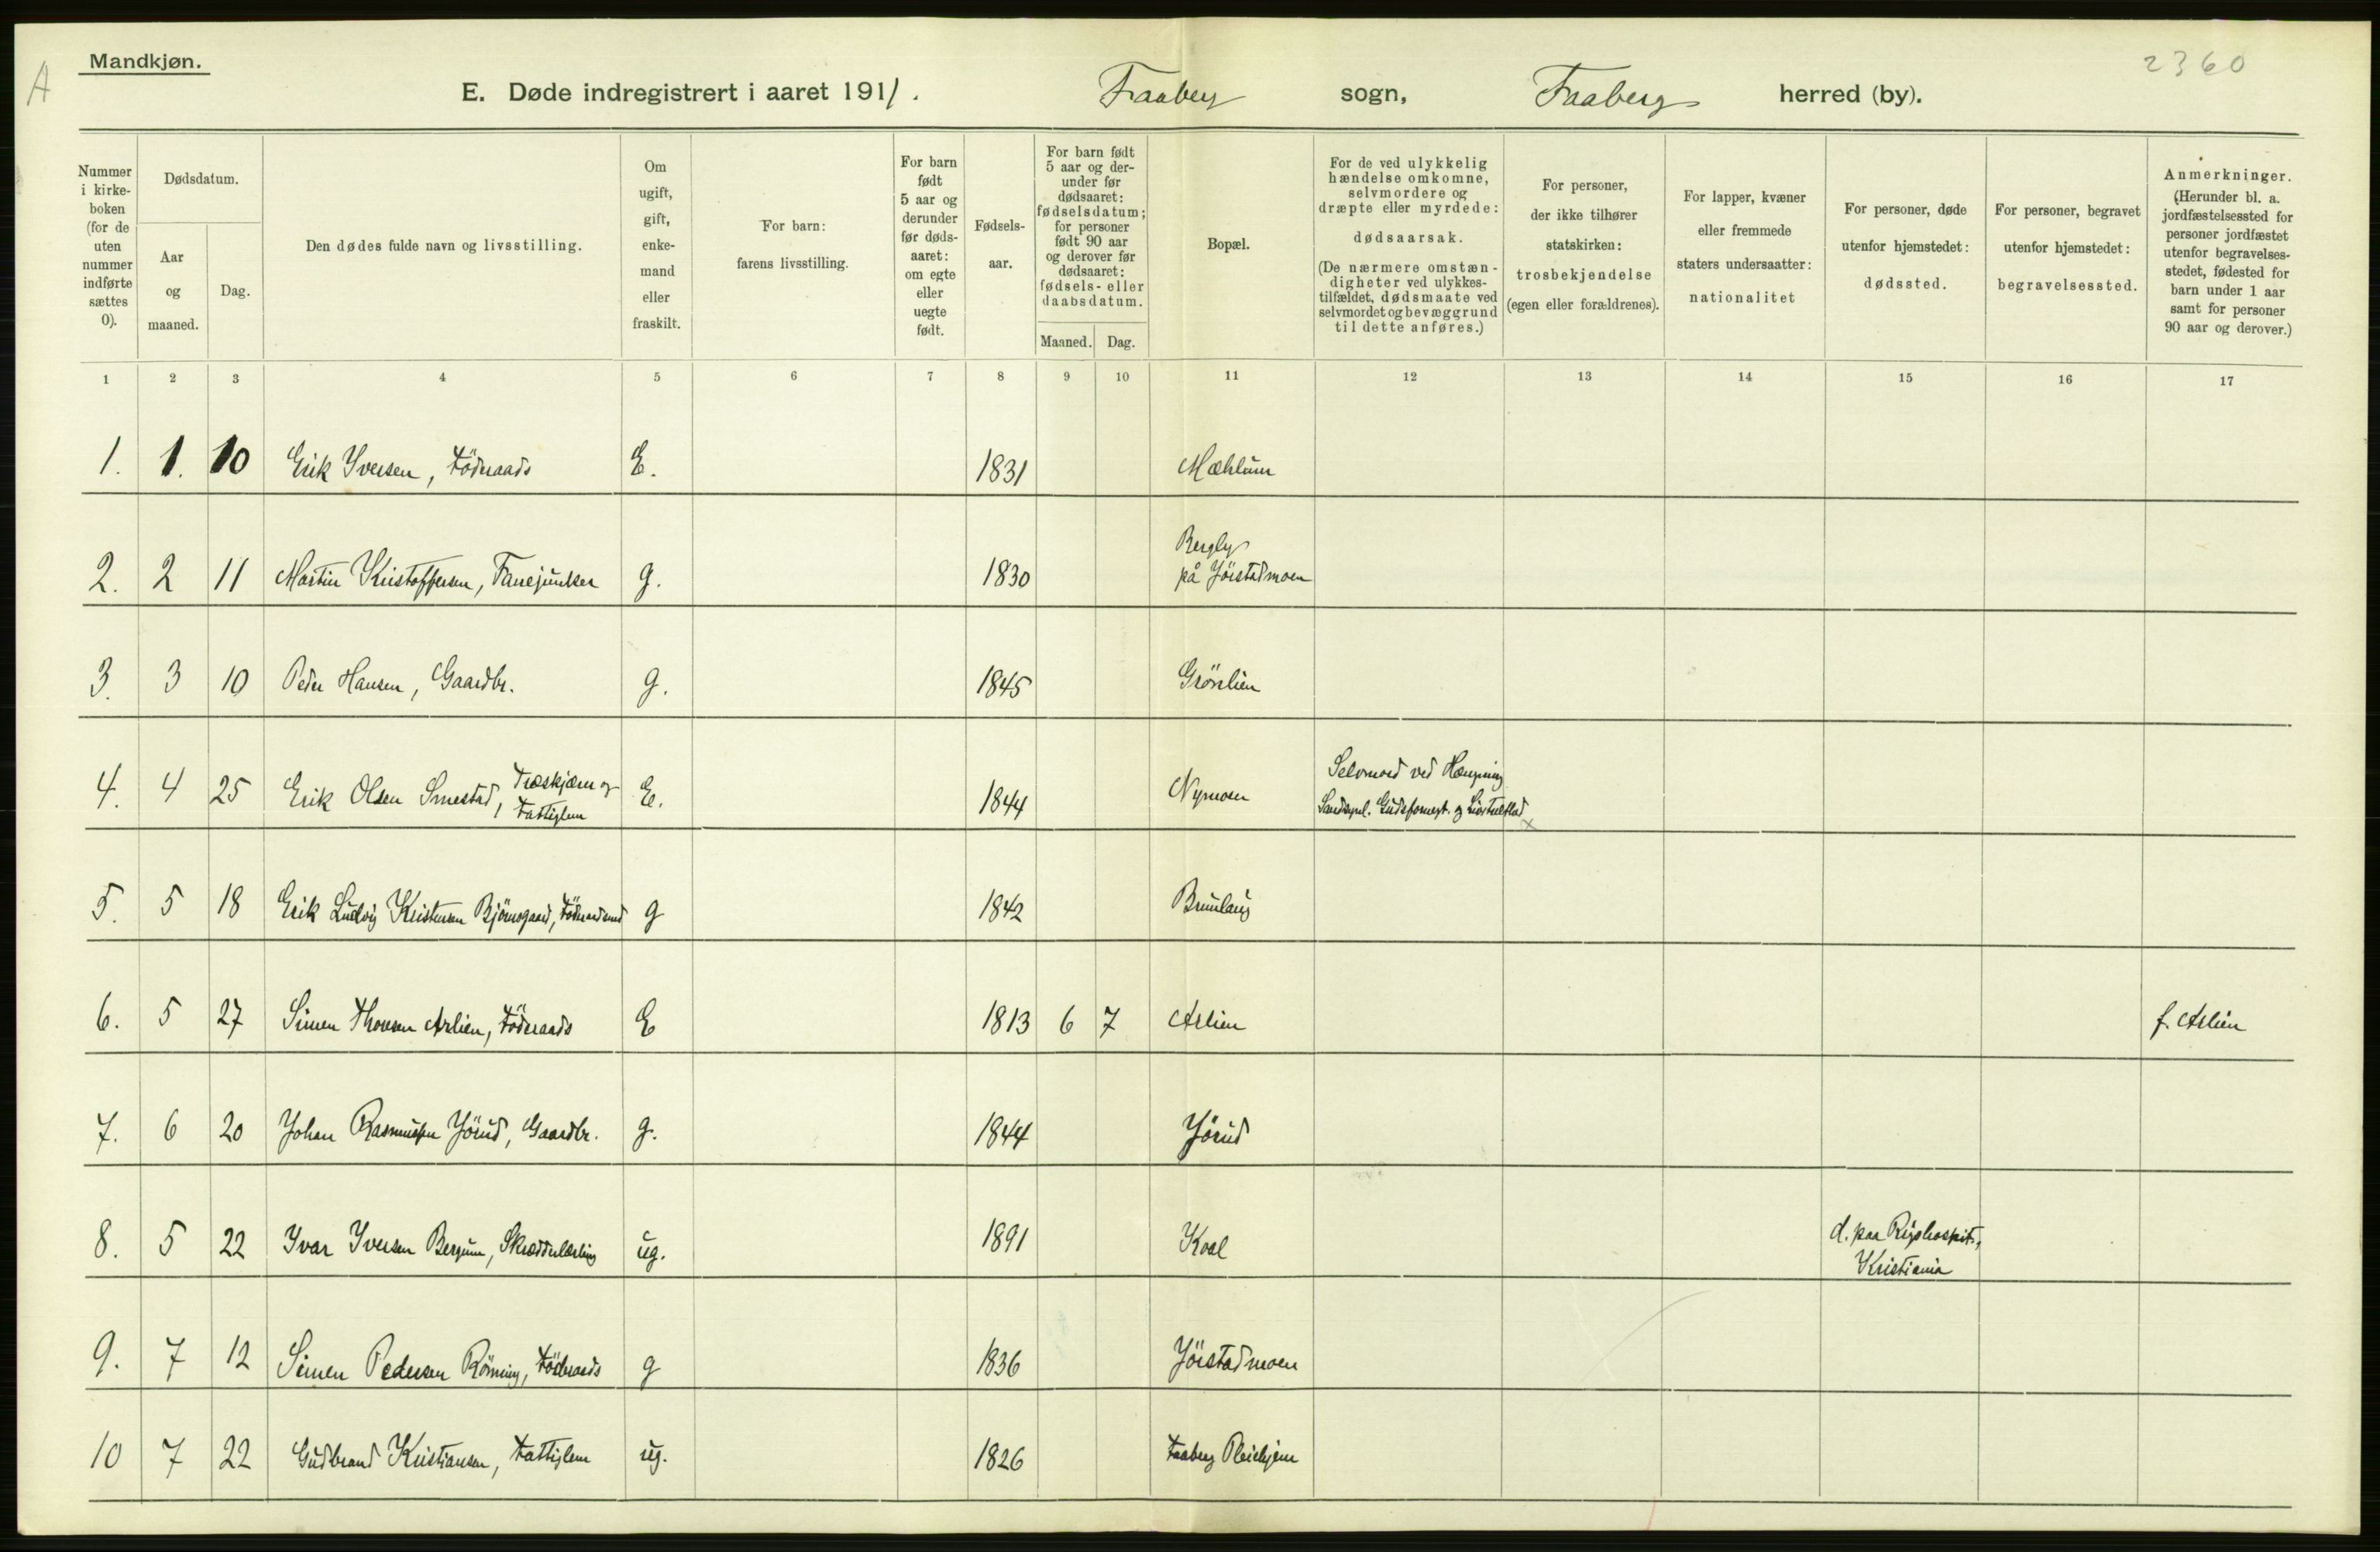 Mandkjøn.
A
2360
E. Døde indregistrert i aaret 1911. Faaberg sogn, Faaberg herred (by).
Nummer i kirke- boken (for de uten nummer indførte sættes 0).
Dødsdatum.
Aar og maaned.
Dag.
Den dødes fulde navn og livsstilling.
Om ugift, gift, enke- mand eller fraskilt.
For barn: farens livsstilling.
For barn født 5 aar og derunder før døds- aaret: om egte eller uegte født.
Fødsels- aar.
For barn født 5 aar og der- under før dødsaaret: fødselsdatum; for personer født 90 aar og derover før dødsaaret: fødsels- eller daabsdatum.
Maaned.
Dag.
Bopæl.
For de ved ulykkelig hændelse omkomne, selvmordere og dræpte eller myrdede: dødsaarsak. (De nærmere omstæn- digheter ved ulykkes- tilfældet, dødsmaate ved selvmordet og bevæggrund til dette anføres.)
For personer, der ikke tilhører statskirken: trosbekjendelse (egen eller forældrenes).
For lapper, kvæner eller fremmede staters undersaatter: nationalitet
For personer, døde utenfor hjemstedet: dødssted.
For personer, begravet utenfor hjemstedet: begravelsessted.
Anmerkninger. (Herunder bl. a. jordfæstelsessted for personer jordfæstet utenfor begravelses- stedet, fødested for barn under 1 aar samt for personer 90 aar og derover.)
1 2 3 4 5 6 7 8 9 10 11 12 13 14 15 16 17
1. 1. 10 Erik Iversen, Föderaads E. 1831 Mæhlum
2. 2 11 Martin Kristoffersen, Fanejunker g. 1830 Bergly
på Jörstadmoen
3. 3 10 Peder Hansen, Gaardbr. g. 1845 Grönlien
4. 4 25 Erik Olsen Smestad, Træskjærer og
Fattiglem E. 1844 Nymoen Selvmord ved Hængning
Gudsfornegt. og
5. 5 18 Erik Ludvig Kristensen Björnsgaard, Föderaadsmd g 1842 Brunlaug
6. 5 27 Simen Thoresen Arlien, Föderaads E 1813 6 7 Arlien f. Arlien
7. 6 20 Johan Rasmussen Jörud, Gaardbr. g. 1844 Jörud
8. 5 22 Ivar Iversen Bergum, Skrædderlærling ug. 1891 Kval d. paa Rigshospit.,
Kristiania
9. 7 12 Simen Pedersen Rönning, Föderaads g 1836 Jörstadmoen
10 7 22 Gudbrand Kristiansen, Fattiglem ug. 1826 Faaberg Pleiehjem